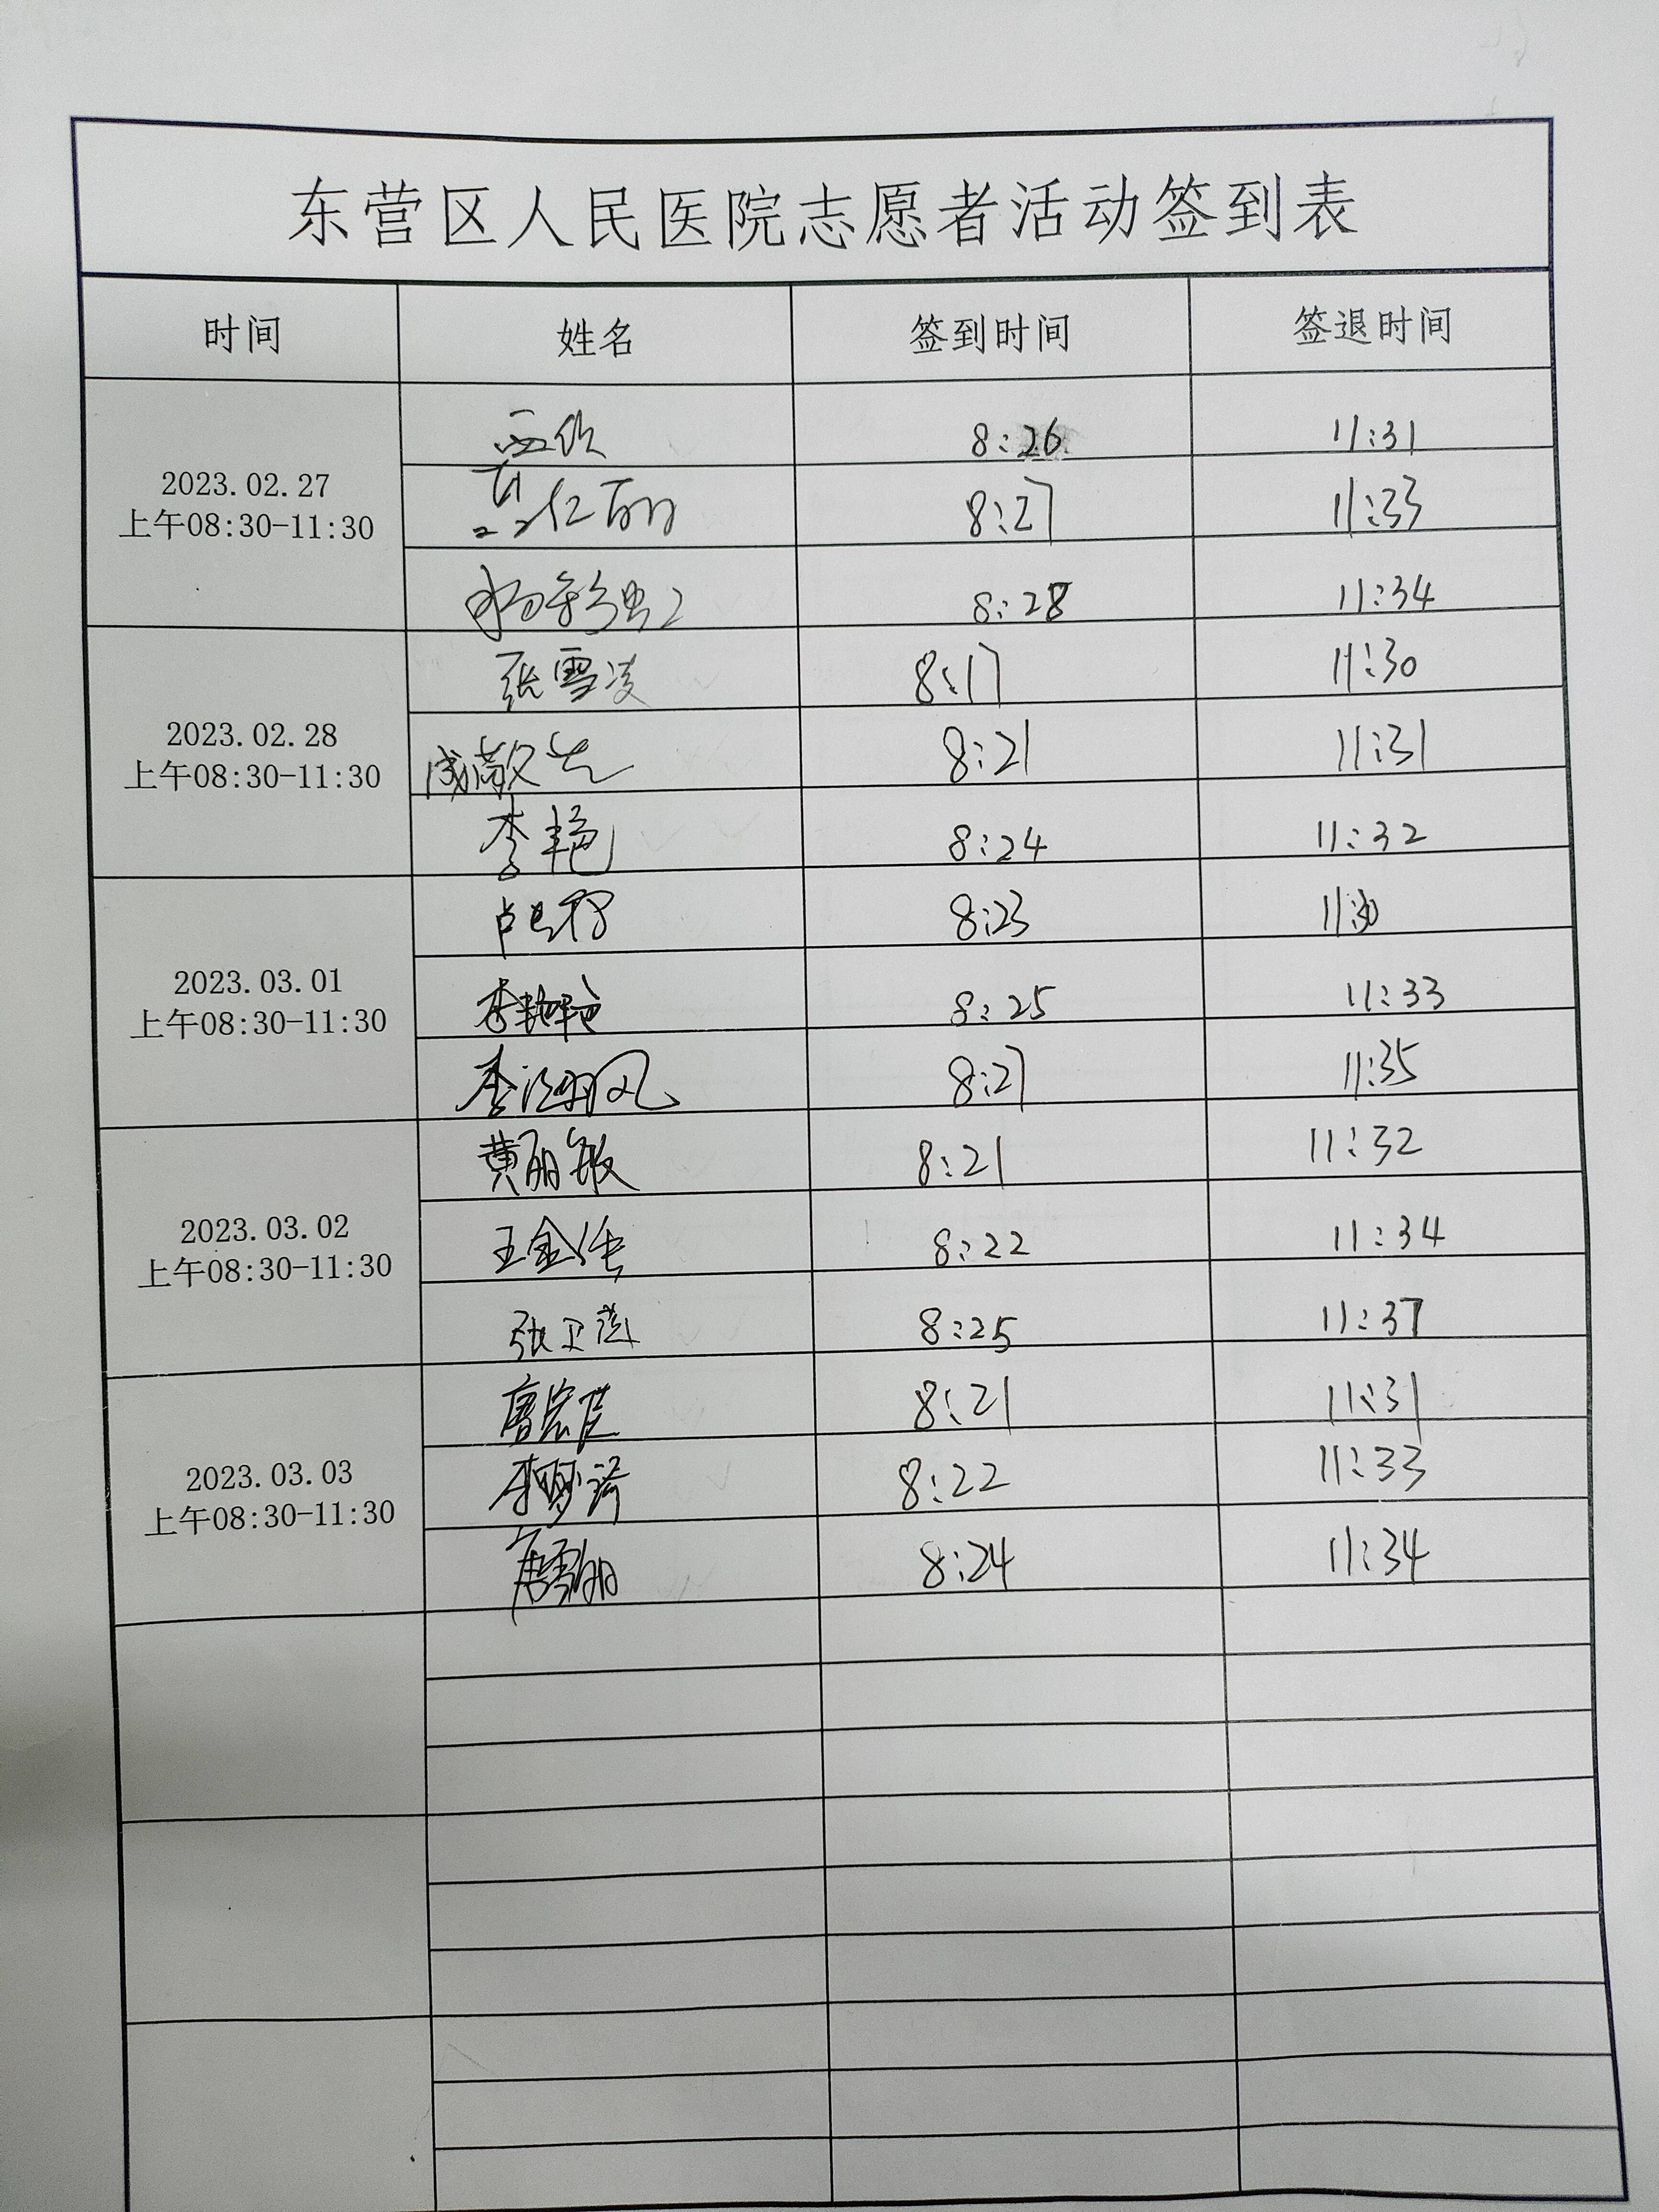 东营区人民医院志愿者活动签到表
时间 姓名 签到时间 签退时间
2023.02.27
上午08:30-11:30
8:26 11:31
8:27 11:33
8:28 11:34
2023.02.28
上午08:30-11:30
张雪凌 8:17 11:30
8:21 11:31
李艳 8:24 11:32
2023.03.01
上午08:30-11:30
8:23 11:30
李艳艳 8:25 11:33
8:27 11:35
2023.03.02
上午08:30-11:30
黄丽敏 8:21 11:32
8:22 11:34
8:25 11:37
2023.03.03
上午08:30-11:30
8:21 11:31
李梦诺 8:22 11:33
8:24 11:34